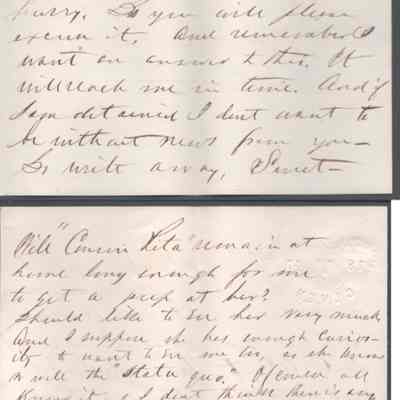 hurry. So you will please
excuse it, And remember I
want an answer to this. It
will reach me in time. And if
I am detained I dont want to
be without news from you —
So write away,
Will "Cousin Leta" remain at
home long enough for me
to get a peep at her?
Should like to see her very much
And I suppose she has enough curios-
ity to want to see me too, as she knows
so well the "Statu quo." Of course all
know it, & I dont think there's any